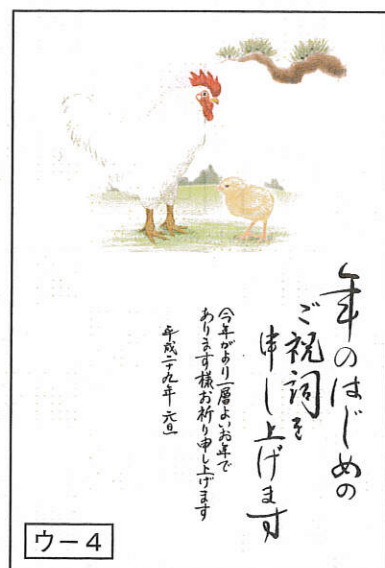 年のはじめの
ご祝詞を
申し上げます
今年がより一層よいお年で
あります様お祈り申し上げます
平成二十九年 元旦
ウー4